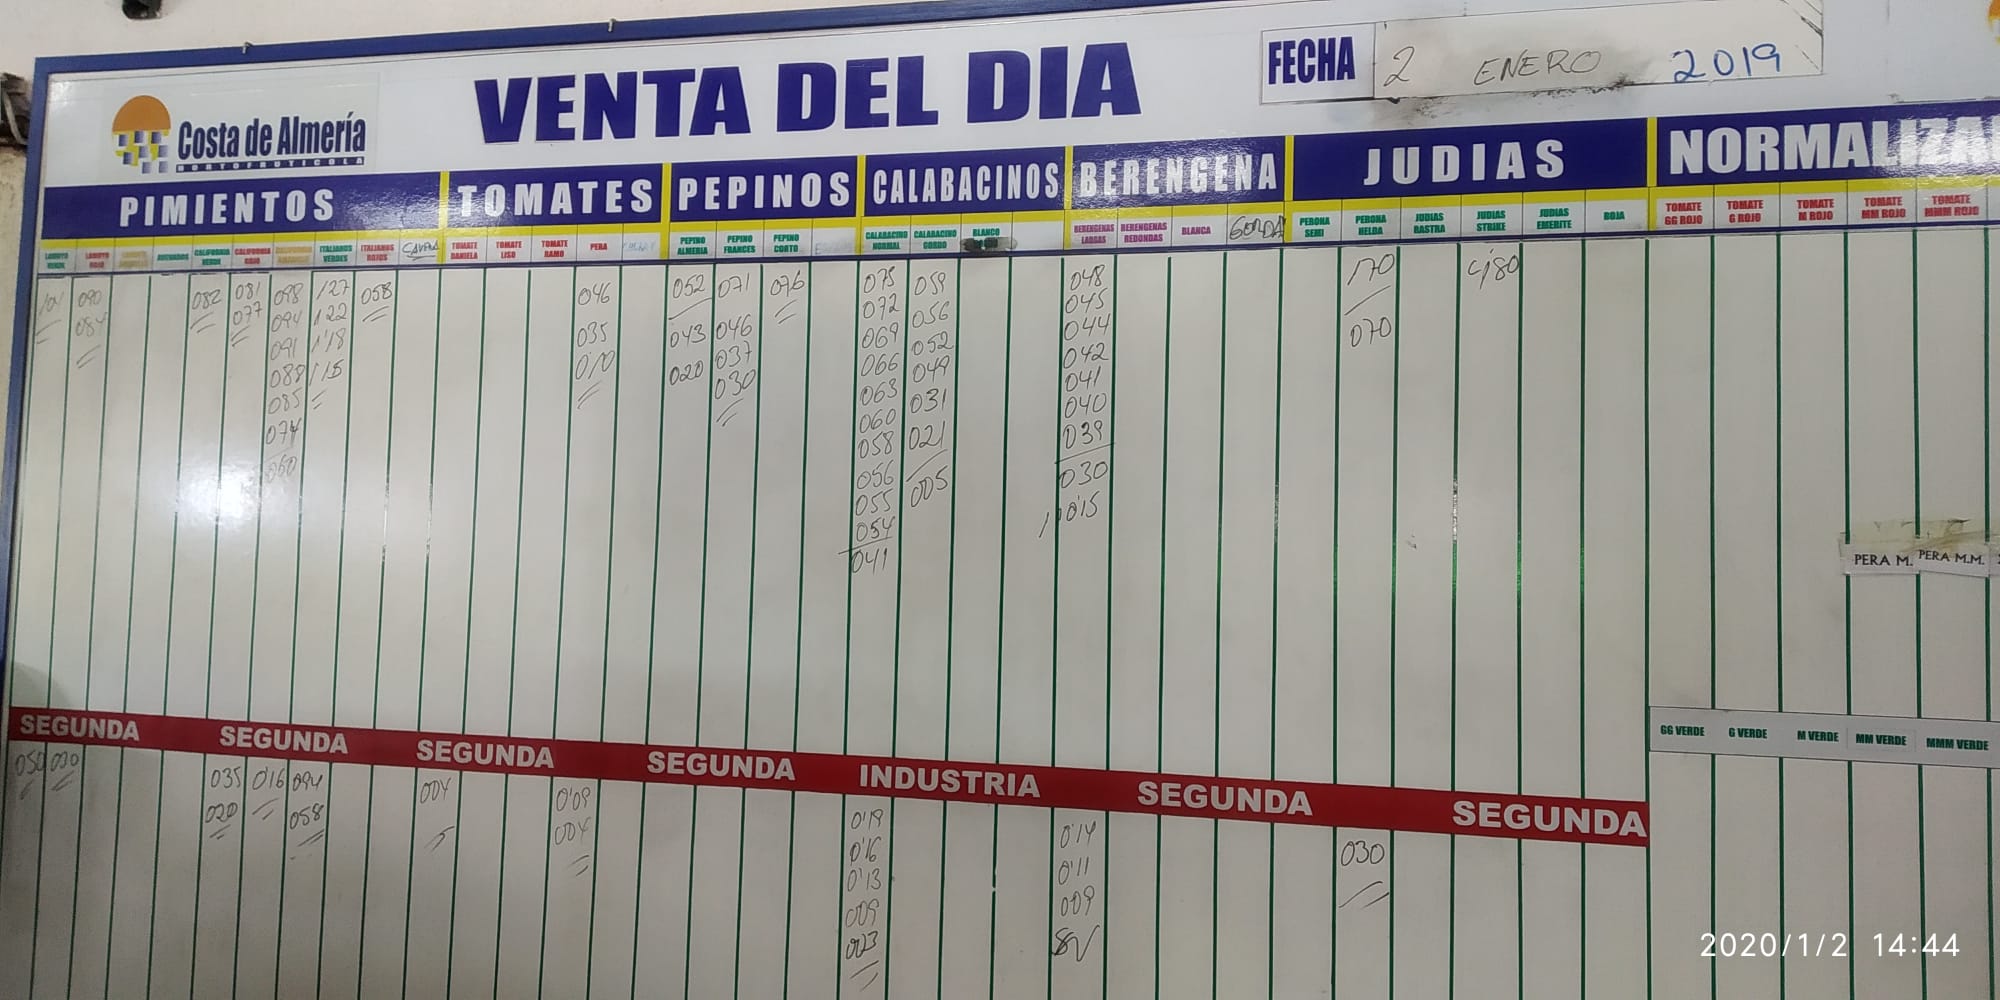 VENTA DEL DIA
FECHA 2 ENERO 2019
Costa de Almería
HORTOFRUTICOLA
PIMIENTOS TOMATES PEPINOS CALABACINOS BERENGENA JUDIAS NORMALIZA
LAMUYO ROJO
CALIFORNIA VERDE
CALIFORNIA ROJO
ITALIANOS VERDES
ITALIANOS ROJOS
TOMATE DANIELA
TOMATE LISO
TOMATE RAMO
PERA
PEPINO ALMERIA
PEPINO FRANCES
PEPINO CORTO
CALABACINO NORMAL
CALABACINO GORDO
BLANCO
BERENGENAS LARGAS
BERENGENAS REDONDAS
BLANCA
GORDA
PERONA SEMI
PERONA HELDA
JUDIAS RASTRA
JUDIAS STRIKE
JUDIAS EMERITE
ROJA
TOMATE GG ROJO
TOMATE G ROJO
TOMATE M ROJO
TOMATE MM ROJO
TOMATE MMM ROJO
090
084
082
081
077
098
094
091
088
085
074
060
127
122
1'18
115
058
046
035
0'10
052
043
020
071
046
037
030
076
075
072
069
066
063
060
058
056
055
054
041
059
056
052
049
031
021
005
048
045
044
042
041
040
039
030
015
170
070
4'80
PERA M.
PERA M.M.
SEGUNDA SEGUNDA SEGUNDA SEGUNDA INDUSTRIA SEGUNDA SEGUNDA
GG VERDE G VERDE M VERDE MM VERDE MMM VERDE
050
030
035
020
0'16
094
058
004
0'09
004
0'19
0'16
0'13
009
003
0'14
0'11
009
SV
030
2020/1/2 14:44